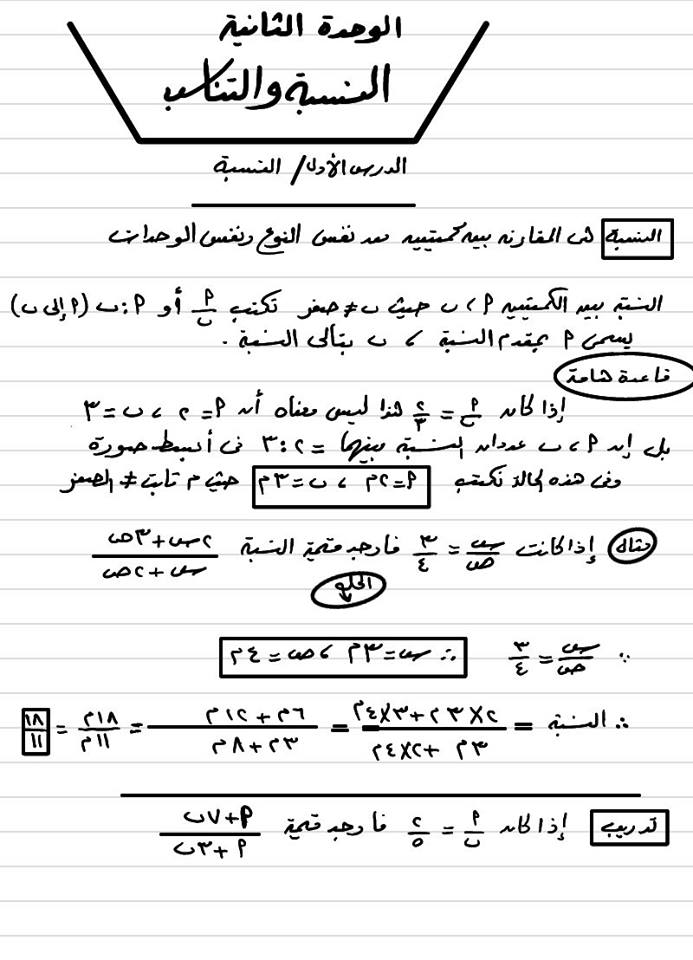 الوحدة الثانية
النسبة والتناسب
الدرس الأول / النسبة
النسبة هى المقارنة بين كميتين من نفس النوع ونفس الوحدات
النسبة بين الكميتين م ، ب حيث ب ≠ صفر تكتب م/ب أو م : ب (م إلى ب)
يسمى م بمقدم النسبة ، ب بتالى النسبة .
قاعدة هامة
إذا كان م/ب = ٢/٣ هذا ليس معناه أن م = ٢ ، ب = ٣
بل إن م ، ب عددان النسبة بينهما = ٢ : ٣ فى أبسط صورة
وفى هذه الحالة نكتب م = ٢م ، ب = ٣م حيث م ثابت ≠ الصفر
مثال إذا كانت س/ص = ٣/٤ فأوجد قيمة النسبة ٢س + ٣ص / س + ٢ص
الحل
∵ س/ص = ٣/٤ ∴ س = ٣م ، ص = ٤م
∴ النسبة = ٢×٣م + ٣×٤م / ٣م + ٢×٤م = ٦م + ١٢م / ٣م + ٨م = ١٨م / ١١م = ١٨/١١
تدريب إذا كان م/ب = ٢/٥ فأوجد قيمة م + ٧ب / م + ٣ب